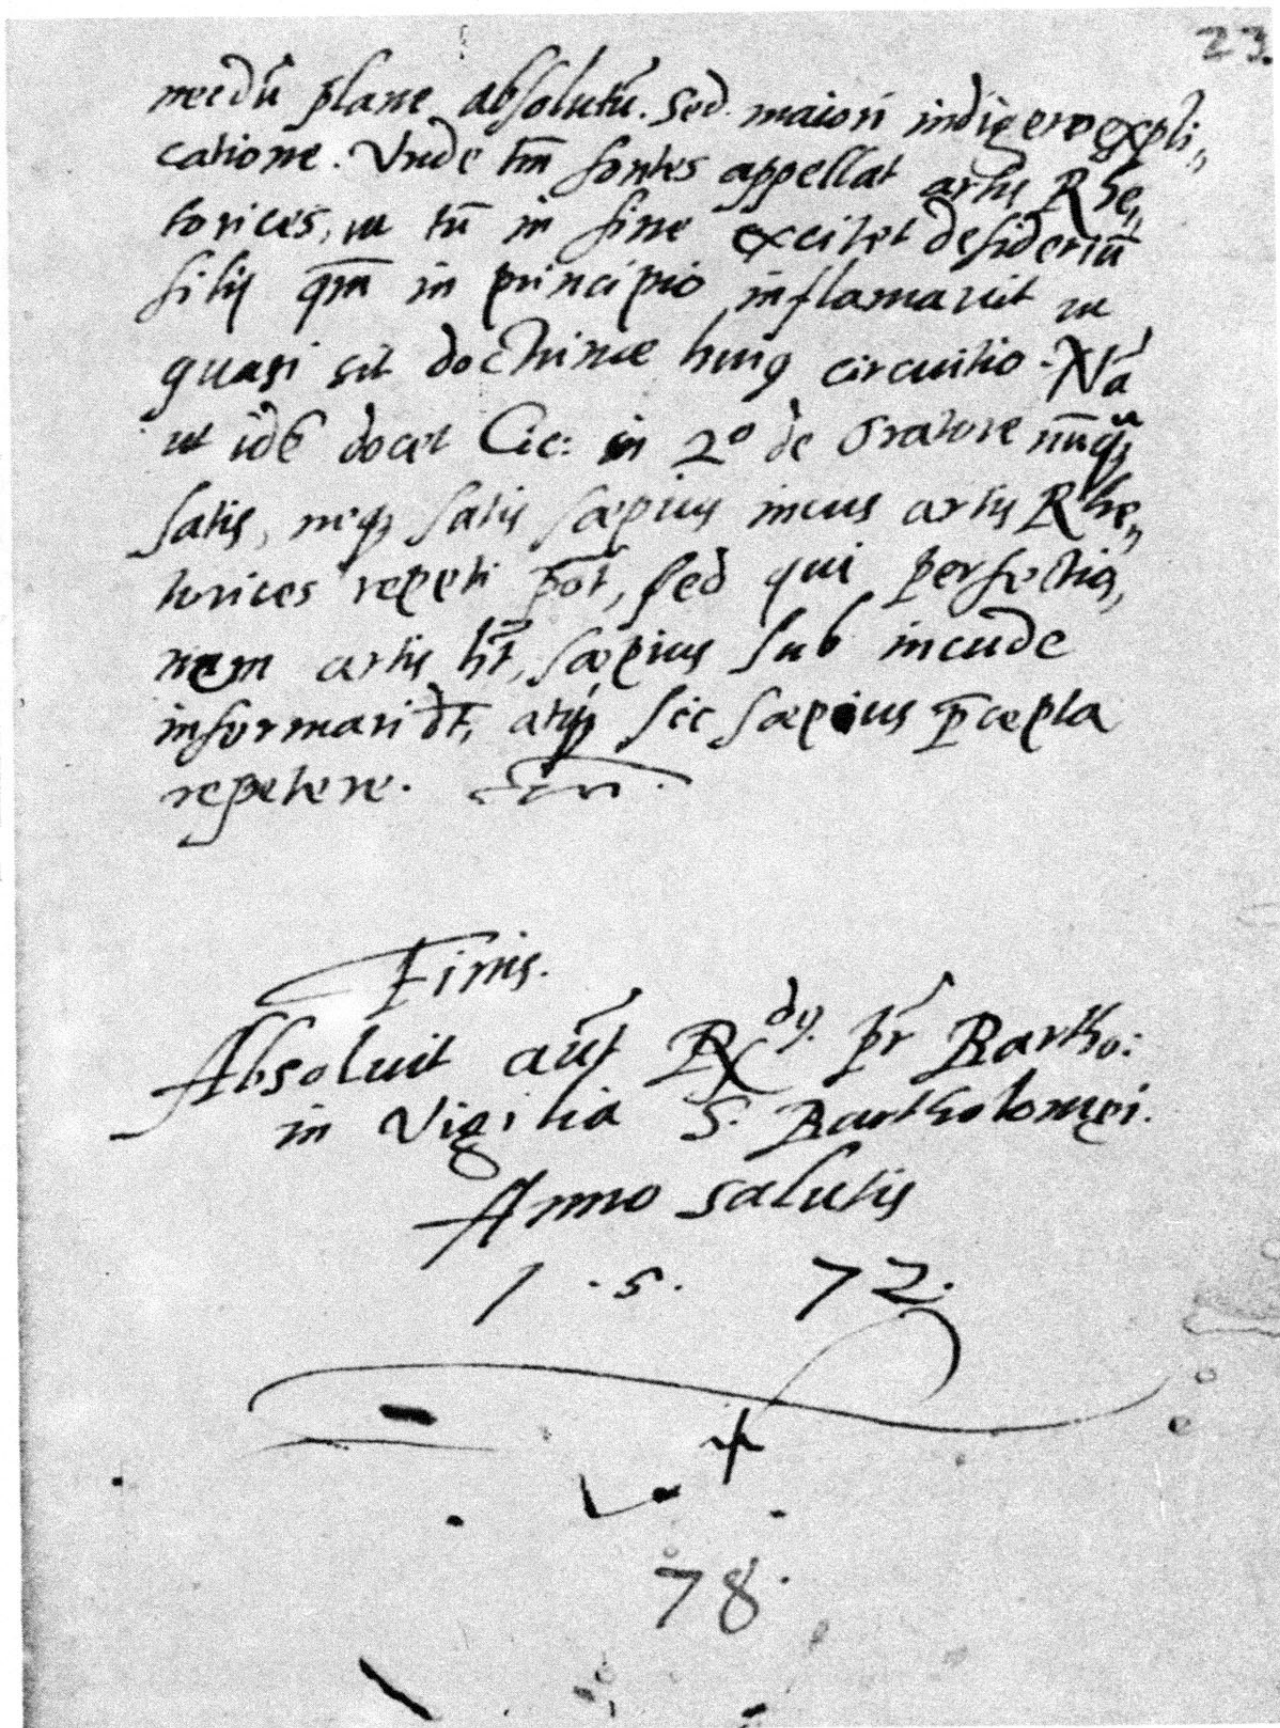 23.
necdū plane absolutū. Sed maiori indigere expli„
catione. Vnde tm̄ fontes appellat artis Rhe„
torices, ut tū in fine excitet desideriū
filij qm̄ in principio inflamauit ut
quasi sit doctrinæ huiꝰ circuitio. Nā
ut idē docet Cic: in 2º de Oratore nūqᵃ
satis, neqȝ satis sæpius incus artis Rhe„
torices repeti pōt, sed qui perfectio„
nem artis ht̄, sæpius sub incude
informari dt̄, atqȝ sic sæpius p̄cepta
repetere.
Finis.
Absoluit aūt R dꝰ. pr̄ Bartho:
in Vigilia S. Bartholomęi.
Anno salutis
1 . 5 . 72.
78.